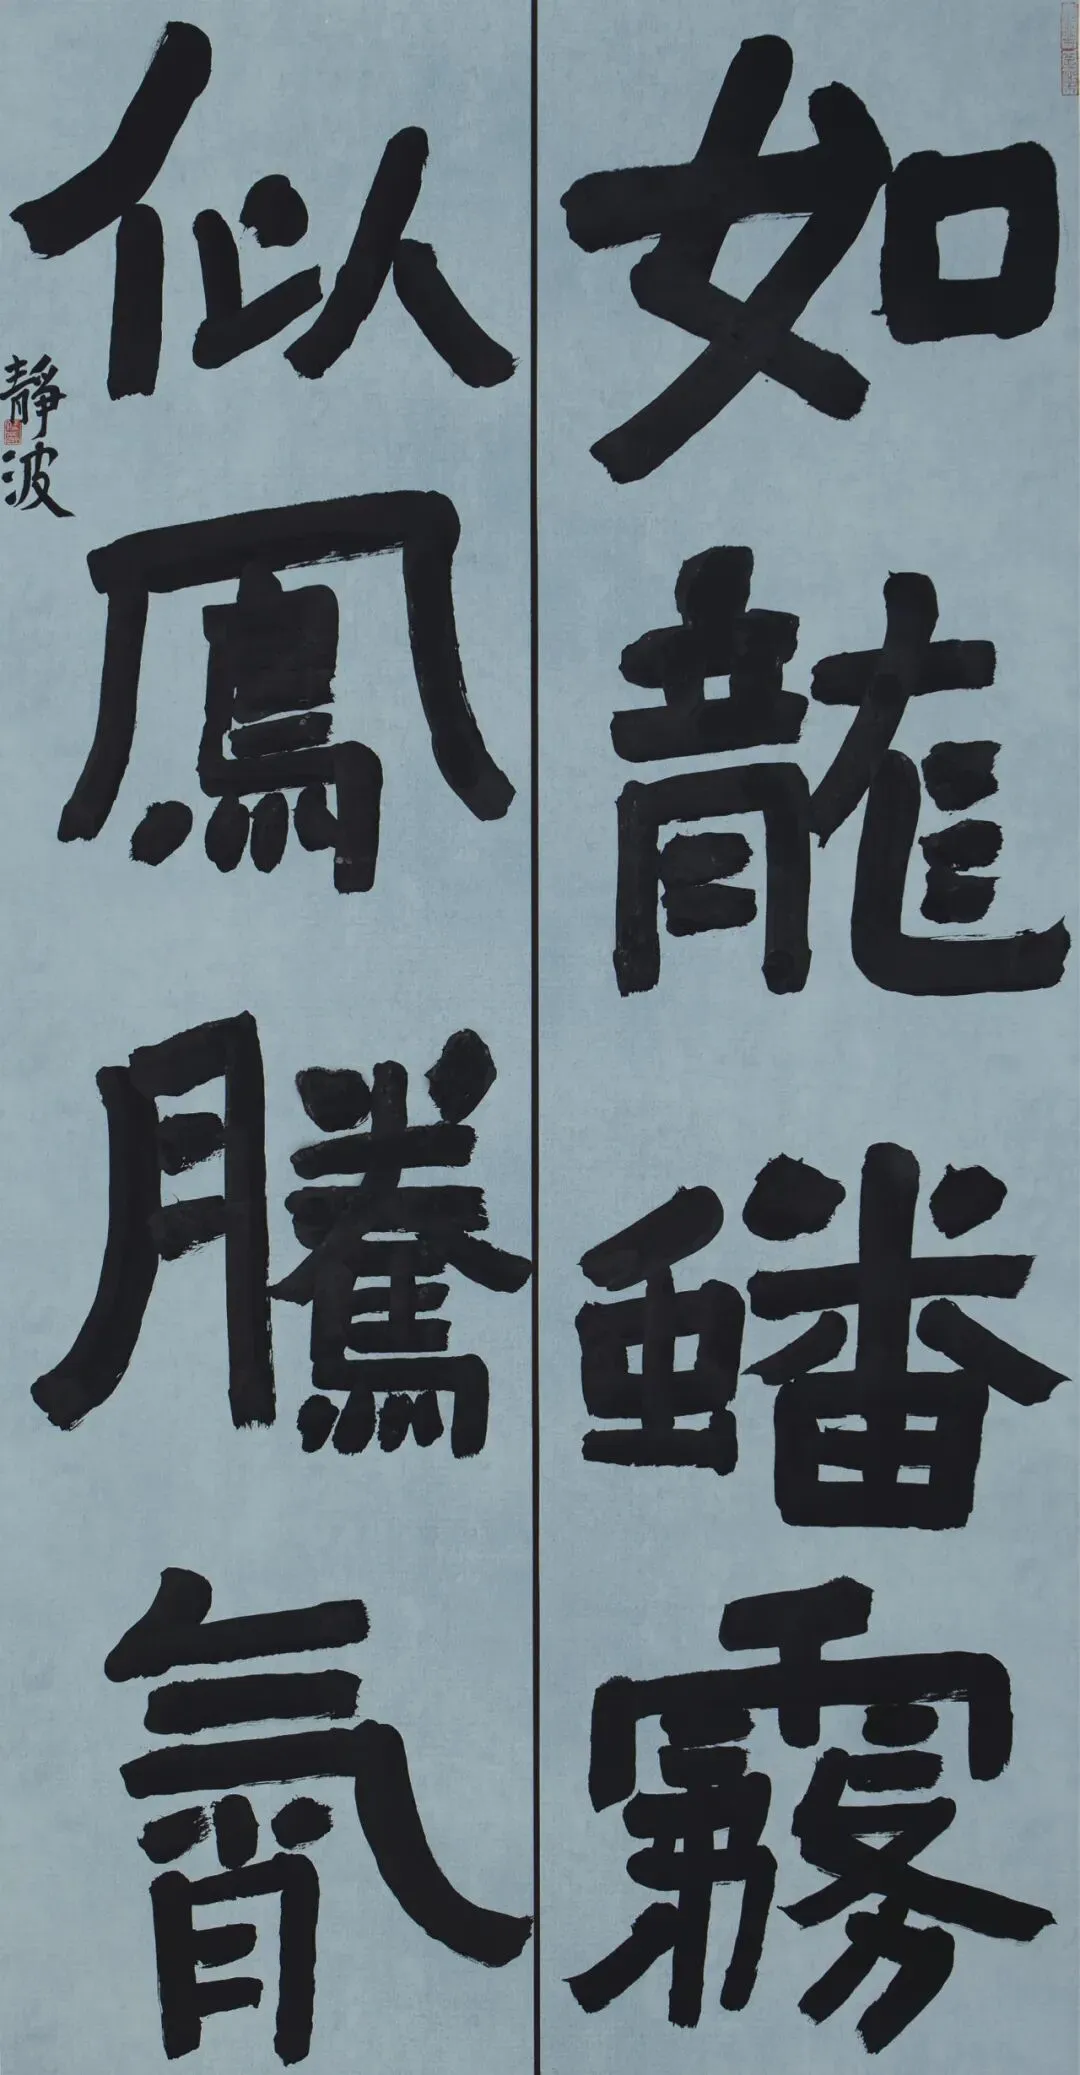 如龍蟠霧
似鳳騰
靜波